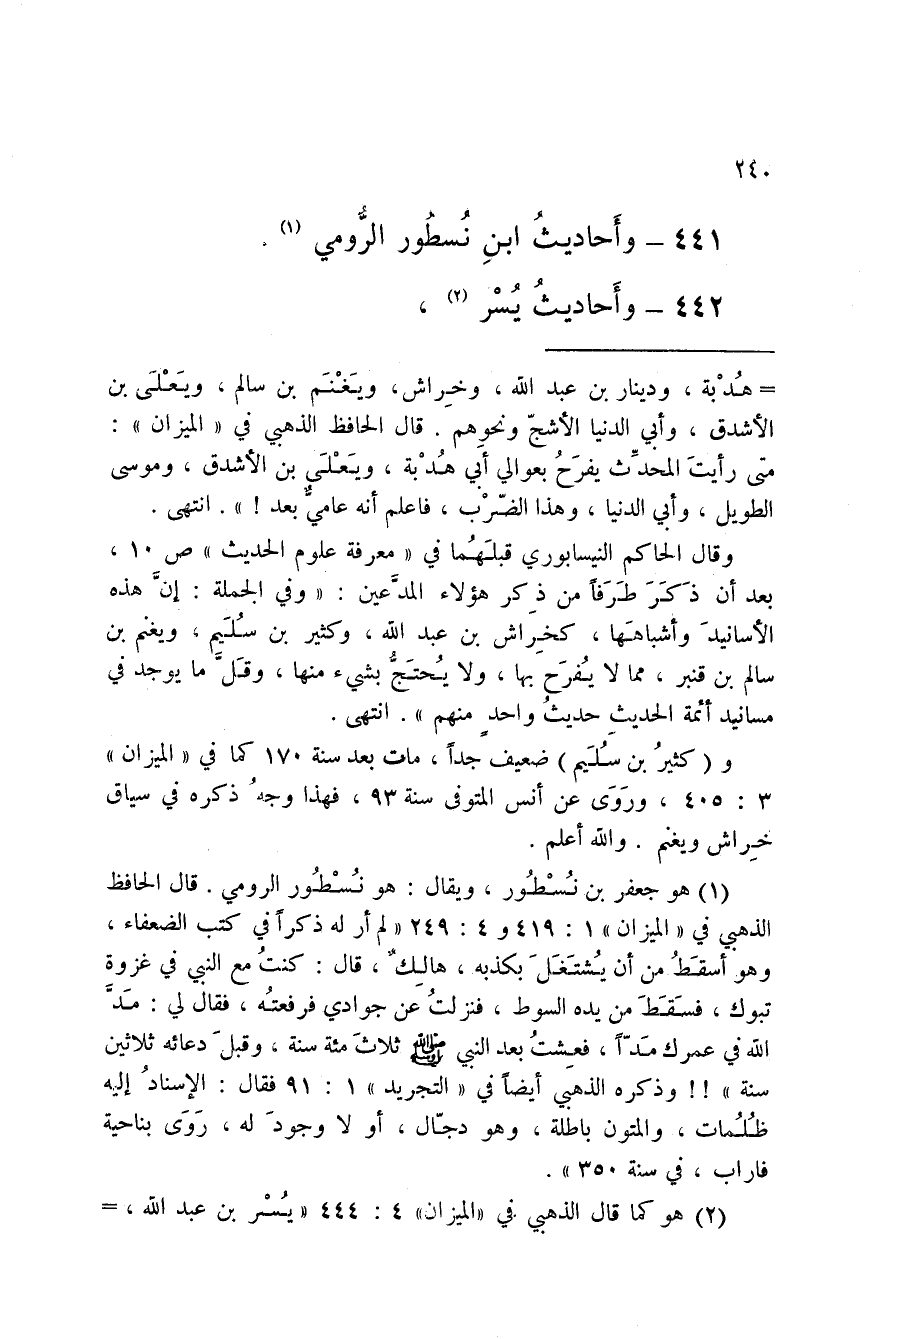 ٢٤٠
٤٤١ – وأَحاديثُ ابنِ نُسطُور الرُّومي (١) .
٤٤٢ – وأَحاديثُ يُسْر (٢) ،
= هُدْبة ، ودينار بن عبد الله ، وخِراش، ويَغْنَم بن سالم ، ويَعْلَى بن
الأشدق ، وأبي الدنيا الأشجّ ونحوهم . قال الحافظ الذهبي في « الميزان » :
متى رأيتَ المحدِّث يفرَحُ بعوالي أبي هُدْبة ، ويَعْلَى بن الأشدق ، وموسى
الطويل ، وأبي الدنيا ، وهذا الضّرْب ، فاعلم أنه عاميٌّ بعد ! » . انتهى .
وقال الحاكم النيسابوري قبلَهُما في « معرفة علوم الحديث » ص ١٠ ،
بعد أن ذكَرَ طَرَفاً من ذكر هؤلاء المدَّعين : « وفي الجملة : إنَّ هذه
الأسانيدَ وأشباهَها ، كخِراش بن عبد الله ، وكثير بن سُلَيم ، ويغنم بن
سالم بن قنبر ، مما لا يُفرَح بها ، ولا يُحتَجُّ بشيء منها ، وقَلَّ ما يوجد في
مسانيد أئمة الحديثِ حديثُ واحدٍ منهم » . انتهى .
و ( كثيرُ بن سُلَيم ) ضعيف جداً ، مات بعد سنة ١٧٠ كما في « الميزان »
٣ : ٤٠٥ ، ورَوَى عن أنس المتوفى سنة ٩٣ ، فهذا وجهُ ذكره في سياق
خِراش ويغنم . والله أعلم .
(١) هو جعفر بن نُسْطُور ، ويقال : هو نُسْطُور الرومي . قال الحافظ
الذهبي في « الميزان » ١ : ٤١٩ و ٤ : ٢٤٩ « لم أر له ذكراً في كتب الضعفاء ،
وهو أسقَطُ من أن يُشتَغَلَ بكذبه ، هالِكٌ ، قال : كنتُ مع النبي في غزوة
تبوك ، فسَقَطَ من يده السوط ، فنزلتُ عن جوادي فرفعتُه ، فقال لي : مَدَّ
الله في عمرك مَدّاً ، فعشتُ بعد النبي ﷺ ثلاثَ مئة سنة ، وقبلَ دعائه ثلاثين
سنة » !! وذكره الذهبي أيضاً في « التجريد » ١ : ٩١ فقال : الإسنادُ إليه
ظُلُمات ، والمتون باطلة ، وهو دجّال ، أو لا وجودَ له ، رَوَى بناحية
فاراب ، في سنة ٣٥٠ » .
(٢) هو كما قال الذهبي في «الميزان» ٤ : ٤٤٤ « يُسْر بن عبد الله ، =